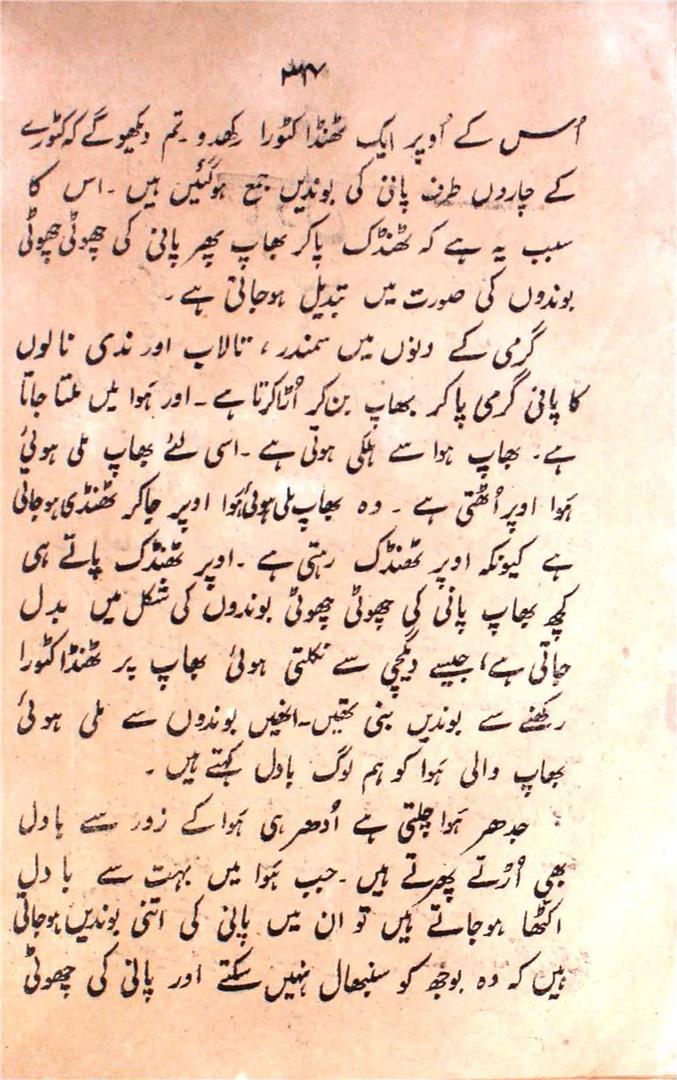 ۳۴
اُس کے اُوپر ایک ٹھنڈا کٹورا رکھدو۔ تم دیکھو گے کہ کٹورے
کے چاروں طرف پانی کی بوندیں جمع ہوگئیں ہیں۔ اس کا
سبب یہ ہے کہ ٹھنڈک پاکر بھاپ پھر پانی کی چھوٹی چھوٹی
بوندوں کی صورت میں تبدیل ہوجاتی ہے۔
گرمی کے دنوں میں سمندر، تالاب اور ندی نالوں
کا پانی گرمی پاکر بھاپ بن کر اُڑا کرتا ہے۔ اور ہَوا میں ملتا جاتا
ہے۔ بھاپ ہوا سے ہلکی ہوتی ہے۔ اسی لئے بھاپ ملی ہوئی
ہَوا اوپر اُٹھتی ہے۔ وہ بھاپ ملی ہوئی ہَوا اوپر جاکر ٹھنڈی ہوجاتی
ہے کیونکہ اوپر ٹھنڈک رہتی ہے۔ اوپر ٹھنڈک پاتے ہی
کچھ بھاپ پانی کی چھوٹی چھوٹی بوندوں کی شکل میں بدل
جاتی ہے، جیسے دیگچی سے نکلتی ہوئی بھاپ پر ٹھنڈا کٹورا
رکھنے سے بوندیں بنی تھیں۔ انھیں بوندوں سے ملی ہوئی
بھاپ والی ہوا کو ہم لوگ بادل کہتے ہیں۔
جدھر ہَوا چلتی ہے اُدھر ہی ہَوا کے زور سے بادل
بھی اُڑتے پھرتے ہیں۔ جب ہَوا میں بہت سے بادل
اکٹھا ہوجاتے ہیں تو ان میں پانی کی اتنی بوندیں ہوجاتی
ہیں کہ وہ بوجھ کو سنبھال نہیں سکتے اور پانی کی چھوٹی